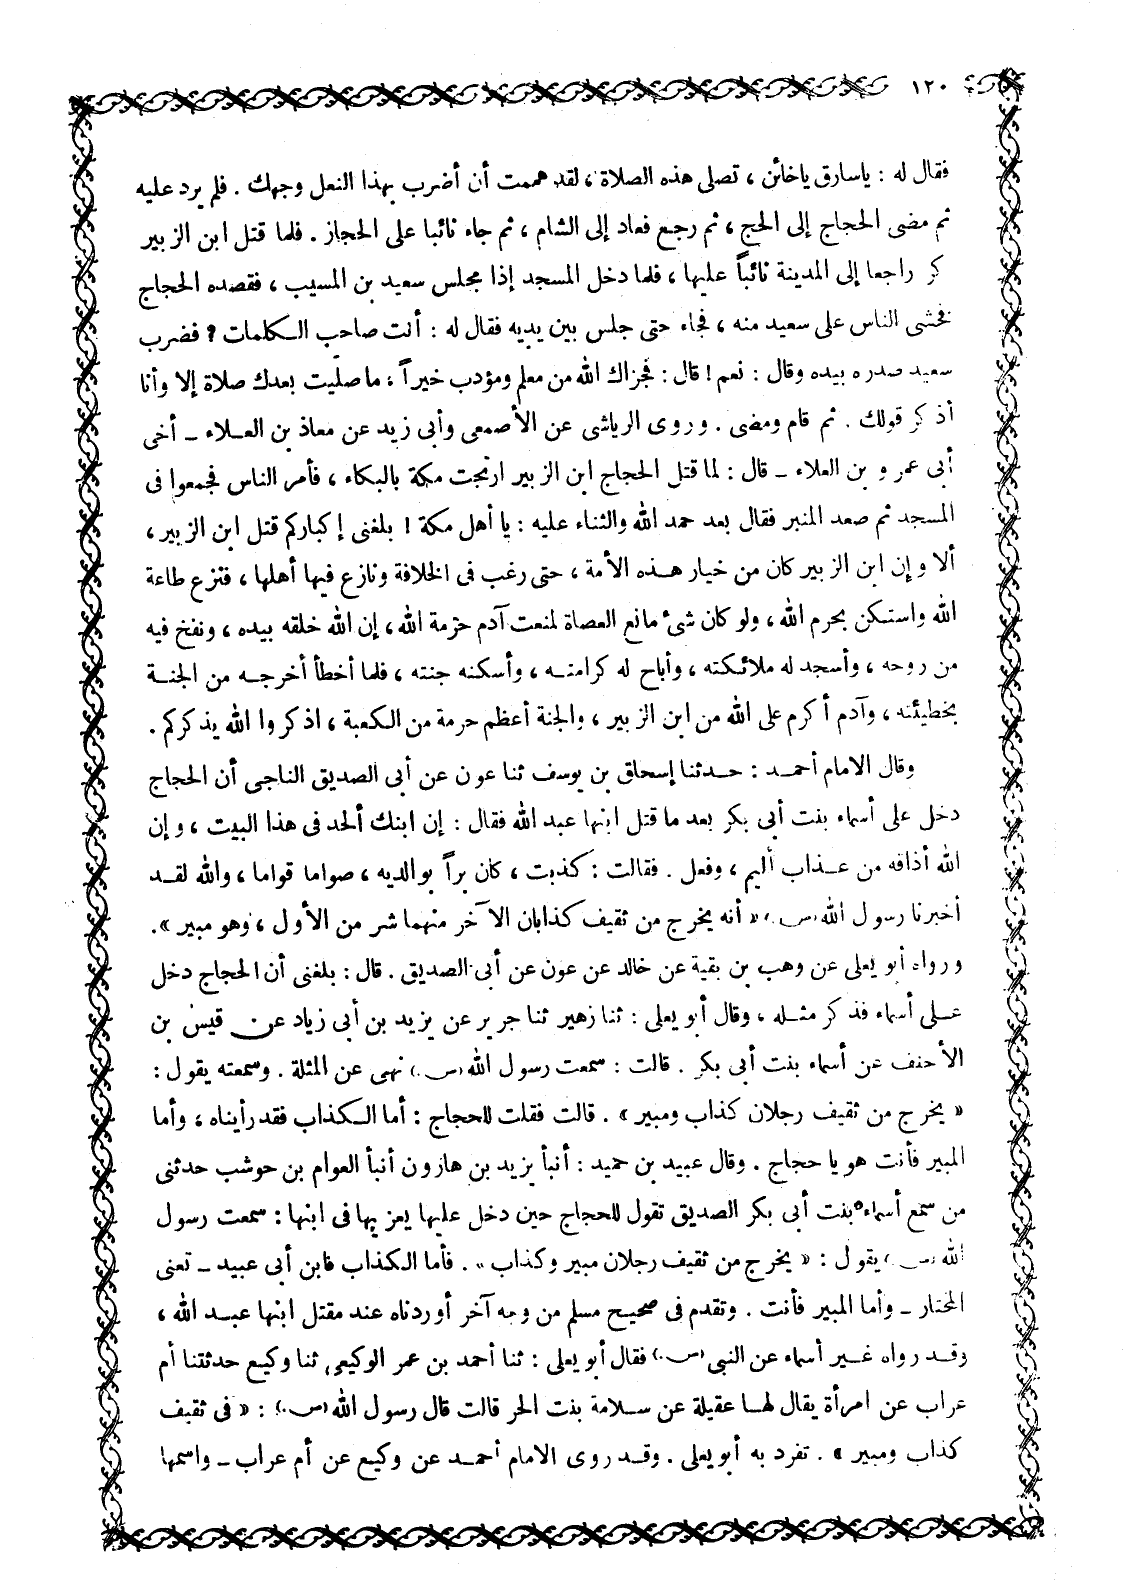 ١٢٠
فقال له : ياسارق ياخائن ، تصلى هذه الصلاة ، لقد هممت أن أضرب بهذا النعل وجهك . فلم يرد عليه
ثم مضى الحجاج إلى الحج ، ثم رجع فعاد إلى الشام ، ثم جاء نائبا على الحجاز . فلما قتل ابن الزبير
كر راجعا إلى المدينة نائباً عليها ، فلما دخل المسجد إذا مجلس سعيد بن المسيب ، فقصده الحجاج
فخشى الناس على سعيد منه ، فجاء حتى جلس بين يديه فقال له : أنت صاحب الكلمات ؟ فضرب
سعيد صدره بيده وقال : نعم ! قال : فجزاك الله من معلم ومؤدب خيراً ، ما صليت بعدك صلاة إلا وأنا
أذكر قولك . ثم قام ومضى . وروى الرياشى عن الأصمعى وأبى زيد عن معاذ بن العلاء ـ أخى
أبى عمرو بن العلاء ـ قال : لما قتل الحجاج ابن الزبير ارتجت مكة بالبكاء ، فأمر الناس فجمعوا فى
المسجد ثم صعد المنبر فقال بعد حمد الله والثناء عليه : يا أهل مكة ! بلغنى إكباركم قتل ابن الزبير ،
ألا وإن ابن الزبير كان من خيار هذه الأمة ، حتى رغب فى الخلافة ونازع فيها أهلها ، فنزع طاعة
الله واستكن بحرم الله ، ولو كان شئ مانع العصاة لمنعت آدم حرمة الله ، إن الله خلقه بيده ، ونفخ فيه
من روحه ، وأسجد له ملائكته ، وأباح له كرامته ، وأسكنه جنته ، فلما أخطأ أخرجه من الجنة
بخطيئته ، وآدم أكرم على الله من ابن الزبير ، والجنة أعظم حرمة من الكعبة ، اذكروا الله يذكركم .
وقال الامام أحمد : حدثنا إسحاق بن يوسف ثنا عون عن أبى الصديق الناجى أن الحجاج
دخل على أسماء بنت أبى بكر بعد ما قتل ابنها عبد الله فقال : إن ابنك ألحد فى هذا البيت ، وإن
الله أذاقه من عذاب أليم ، وفعل . فقالت : كذبت ، كان براً بوالديه ، صواما قواما ، والله لقد
أخبرنا رسول الله (س.) « أنه يخرج من ثقيف كذابان الآخر منهما شر من الأول ، وهو مبير » .
ورواه أبو يعلى عن وهب بن بقية عن خالد عن عون عن أبى الصديق . قال : بلغنى أن الحجاج دخل
على أسماء فذكر مثله ، وقال أبو يعلى : ثنا زهير ثنا جرير عن يزيد بن أبى زياد عن قيس بن
الأحنف عن أسماء بنت أبى بكر . قالت : سمعت رسول الله (س.) نهى عن المثلة . وسمعته يقول :
« يخرج من ثقيف رجلان كذاب ومبير » . قالت فقلت للحجاج : أما الكذاب فقد رأيناه ، وأما
المبير فأنت هو يا حجاج . وقال عبيد بن حميد : أنبأ يزيد بن هارون أنبأ العوام بن حوشب حدثنى
من سمع أسماء بنت أبى بكر الصديق تقول للحجاج حين دخل عليها يعزيها فى ابنها : سمعت رسول
الله (س.) يقول : « يخرج من ثقيف رجلان مبير وكذاب » . فأما الكذاب فابن أبى عبيد ـ تعنى
المختار ـ وأما المبير فأنت . وتقدم فى صحيح مسلم من وجه آخر أوردناه عند مقتل ابنها عبد الله ،
وقد رواه غير أسماء عن النبى (س.) فقال أبو يعلى : ثنا أحمد بن عمر الوكيعى ثنا وكيع حدثتنا أم
عراب عن امرأة يقال لها عقيلة عن سلامة بنت الحر قالت قال رسول الله (س.) : « فى ثقيف
كذاب ومبير » . تفرد به أبو يعلى . وقد روى الامام أحمد عن وكيع عن أم عراب ـ واسمها